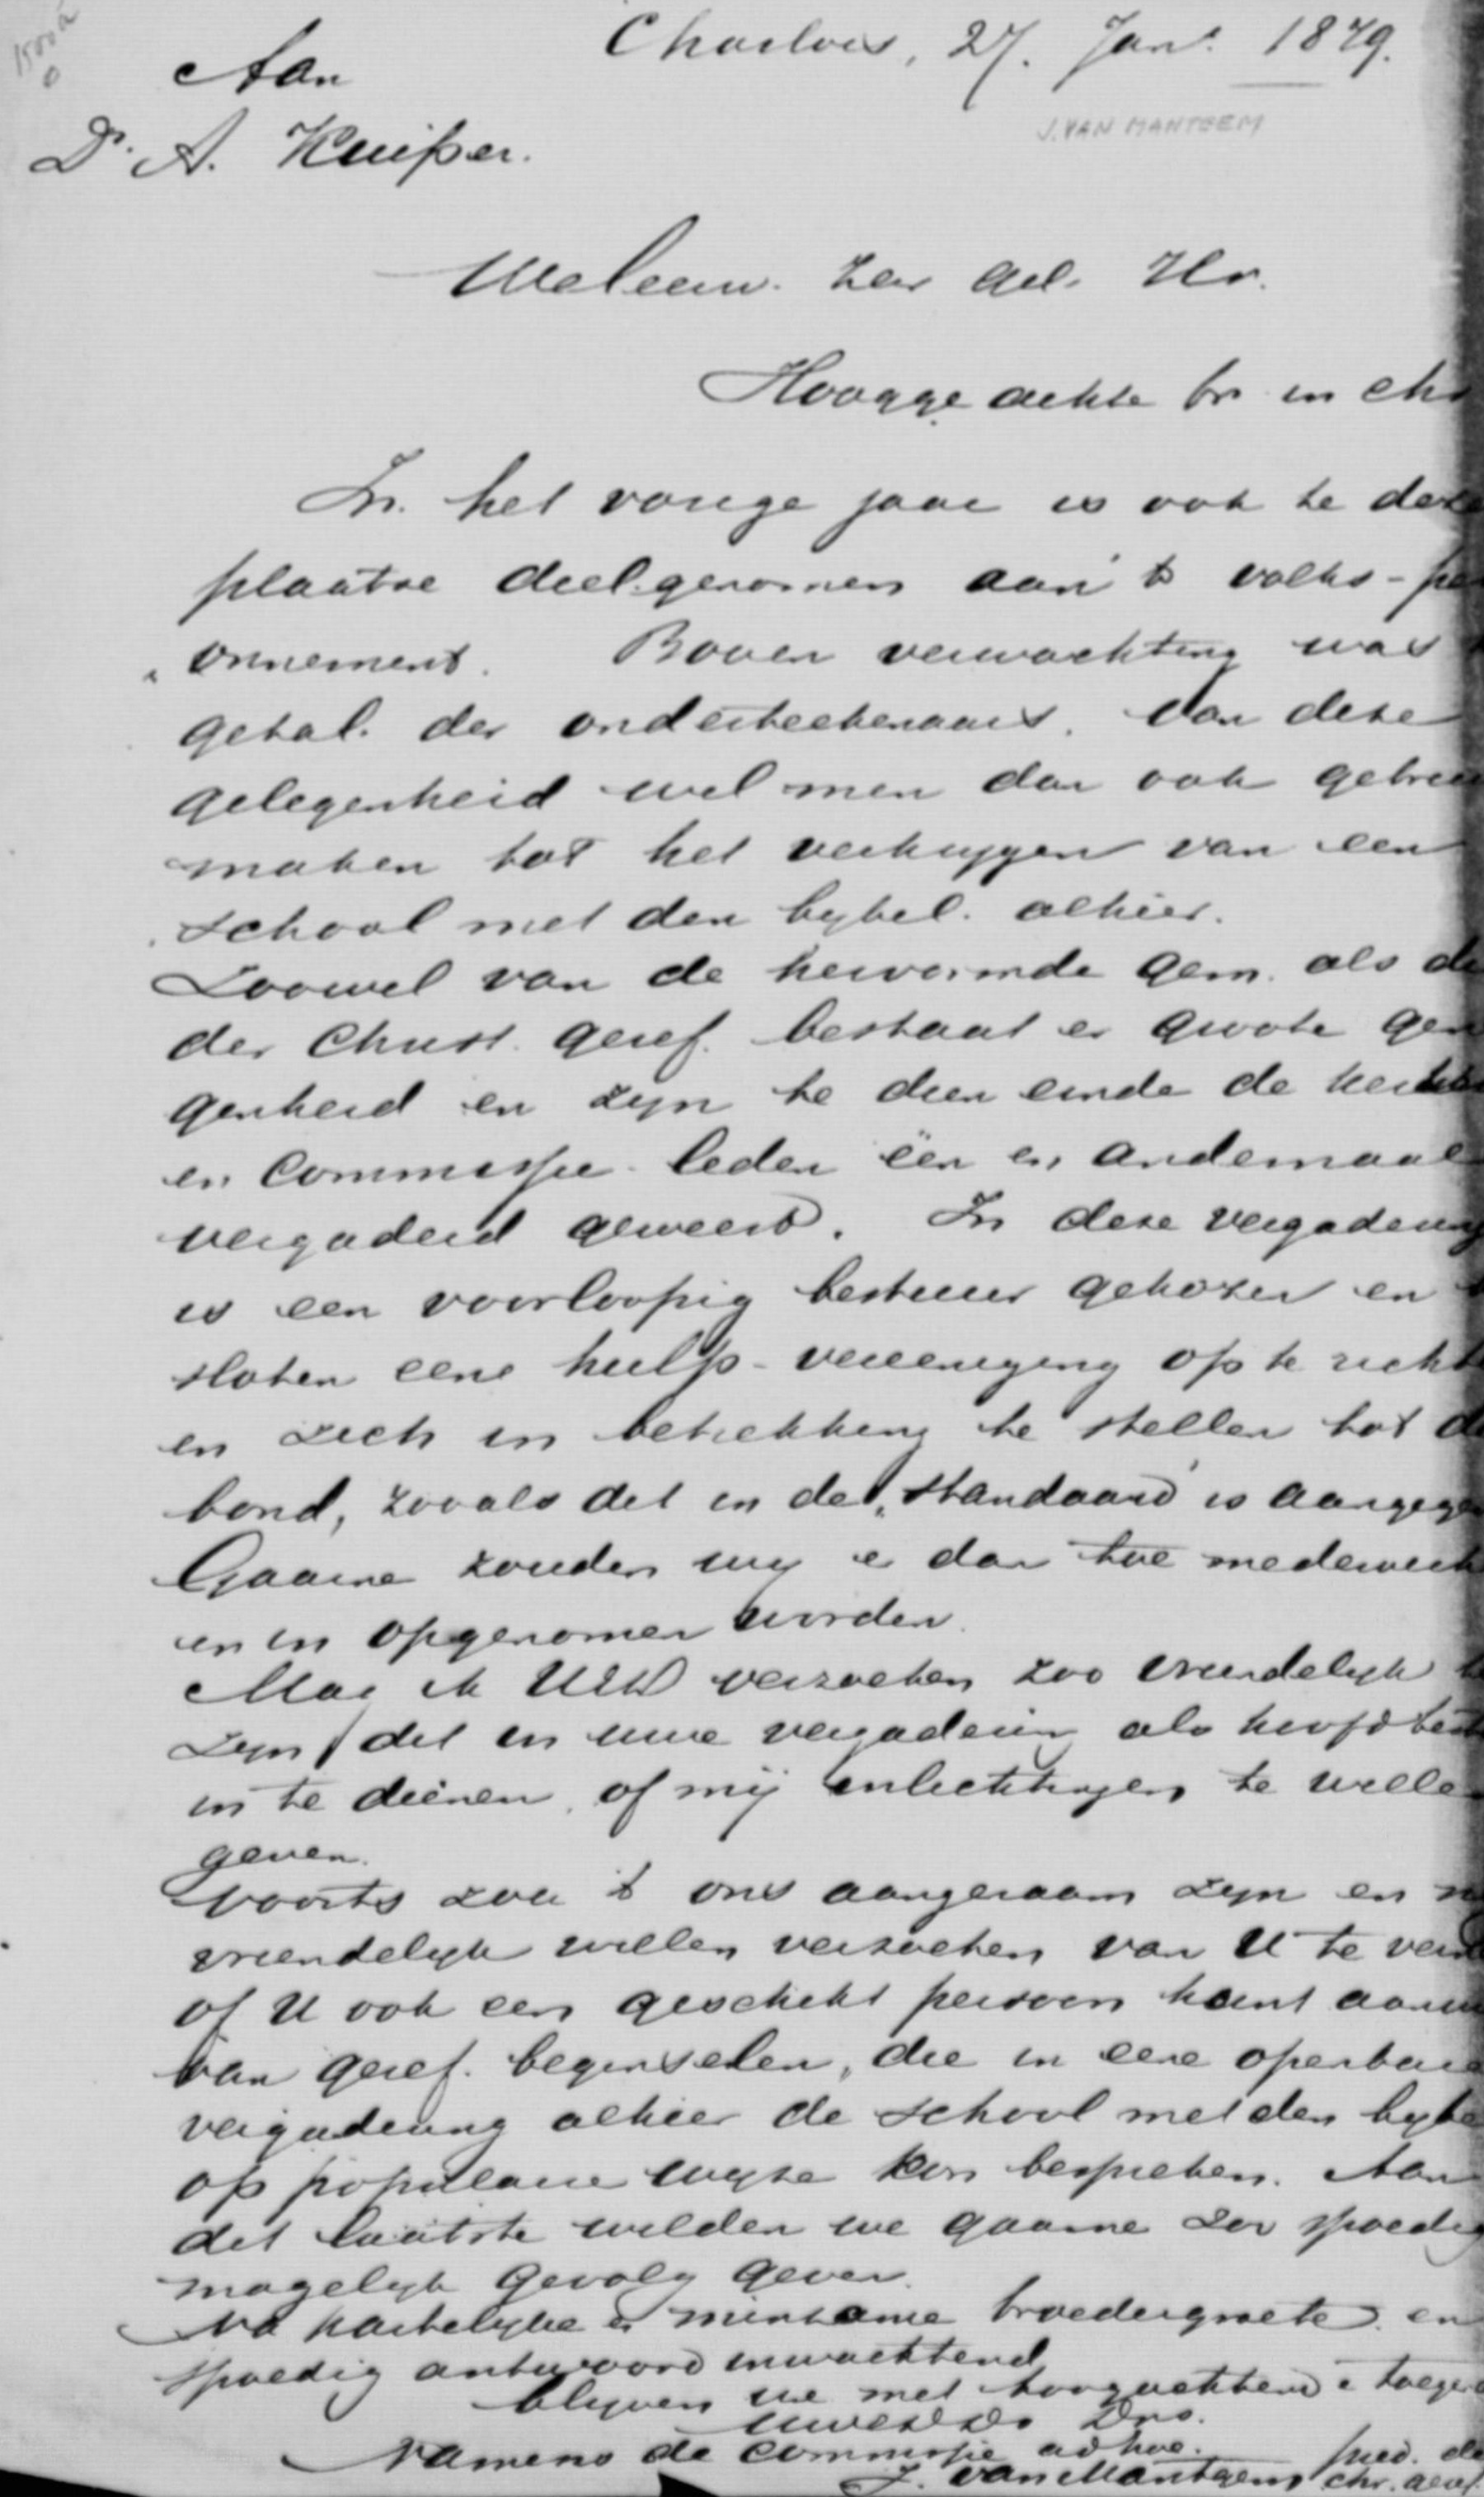 Charlois, 27. Jan. 1879.
Aan
J. VAN MANTGEM
Dr. A. Kuiper.
Weleerw. Zeer Gel. Hr.
Hooggeachte br in Ch
In het vorige jaar is ook te deze
plaatse deelgenomen aan 't volks-pe
onnement. Boven verwachting was
getal der onderteekenaars. Van deze
gelegenheid wil men dan ook gebru
maken tot het verkrijgen van een
school met den bybel alhier.
Zoowel van de hervormde gem. als de
der Christ. geref. bestaat er groote gen
genheid en zyn te dien einde de kerk
en Commissie leden één en andermaal
vergaderd geweest. In deze vergadering
is een voorloopig bestuur gekozen en
sloten eene hulp-vereeniging op te richt
en zich in betrekking te stellen tot de
bond, zooals dit in de "Standaard" is aangege
Gaarne zouden wy er dan toe medewerk
en in opgenomen worden.
Mag ik UEd verzoeken zoo vriendelyk
zyn dit in uwe vergadering als hoofdbest
in te dienen, of mij inlichtingen te wille
geven.
Voorts zou 't ons aangenaam zyn en
vriendelyk willen verzoeken van U te ver
of U ook een geschikt persoon kunt aan
van geref. beginselen, die in eene openbare
vergadering alhier de school met den bybe
op populaire wyze kan bespreken. Aan
dit laatste wilden we gaarne zoo spoedig
mogelyk gevolg geven.
Na hartelyke & minzame broedergroete en
spoedig antwoord inwachtend
blyven we met hoogachtend & toege
UwEdDr Drs.
Namens de Commissie ad hoc.
J. van Mantgem pred. de
chr. geref.